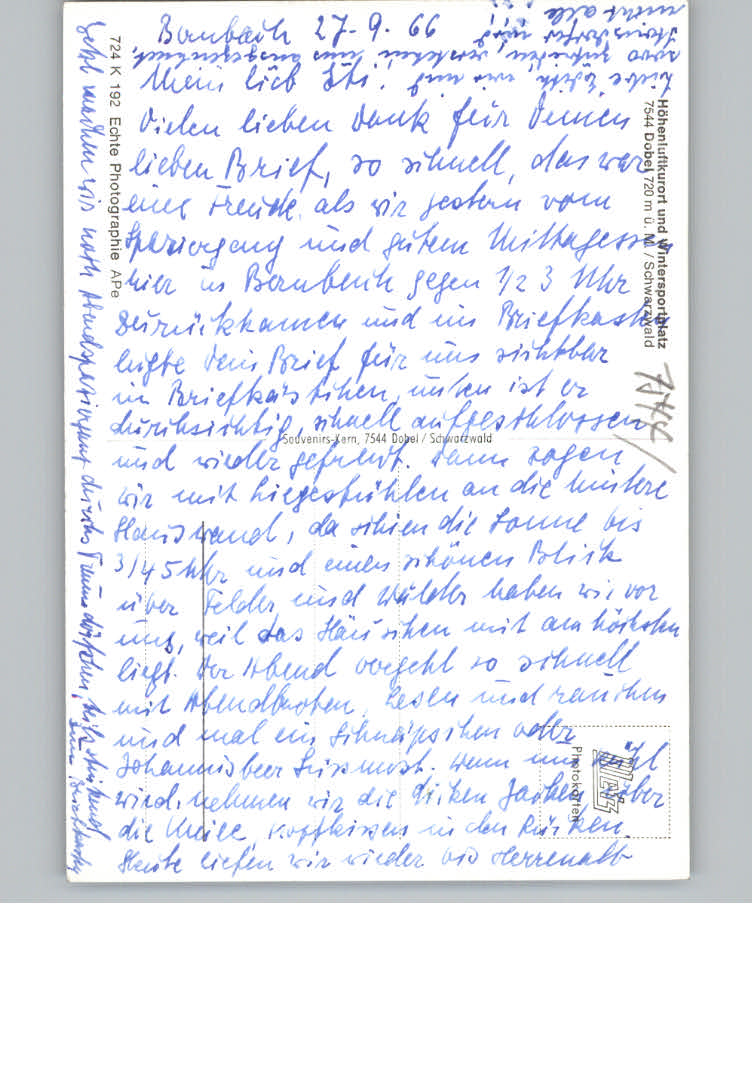 Bernbach 27-9.66
Mein lieb
Vielen lieben Dank für Deinen
lieben Brief, so schnell, das war
eine Freude, als wir gestern vom
Spaziergang und gutem Mittagessen
hier in Bernbach gegen 1/2 3 Uhr
zurückkamen und im Briefkasten
Dein Brief für uns sichtbar
im Briefkästchen, unten ist er
durchsichtig, schnell aufgeschlossen
und wieder gefreut. Dann zogen
wir mit Liegestühlen an die hintere
Hauswand, da schien die Sonne bis
3/4 5 Uhr und einen schönen Blick
über Felder und Wälder haben wir vor
uns, weil das Häuschen mit am höchsten
liegt. Der Abend vergeht so schnell
mit Abendbroten, Lesen und rauchen
und mal ein Schnäpschen oder
Johannisbeer Süssmost. Wenn uns kühl
wird, nehmen wir die dicken Jacken über
die Kopfkissen in den Rücken.
Heute liefen wir wieder bis Herrenalb
Jetzt machen wir noch Abendspaziergang durchs
zum Briefkasten
Höhenluftkurort und Wintersportplatz
7544 Dobel 720 m ü. M. / Schwarzwald
7544/
724 K 192 Echte Photographie APe
Souvenirs-Kern, 7544 Dobel / Schwarzwald
Metz
Photokarten